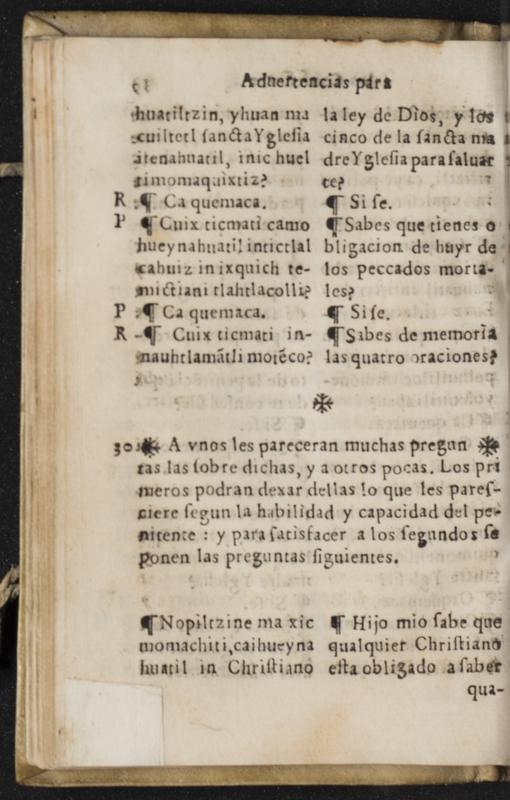 Aduertencias para
huatiltzin, yhuan ma
cuiltetl sanctaYglesia
itenahuatil, inic huel
timomaquixtiz?
R ¶ Ca quemaca.
P ¶Cuix ticmati camo
hueynahuatil intictlal
cahuiz in ixquich te-
mictiani tlahtlacolli?
P ¶ Ca quemaca.
R ¶ Cuix ticmati in-
nauhtlamãtli motẽco?
la ley de Dios, y los
cinco de la sancta ma
dreYglesia para saluar
te?
¶ Si se.
¶Sabes que tienes o
bligacion de huyr de
los peccados morta-
les?
¶ Si se.
¶Sabes de memoria
las quatro oraciones?
30 A vnos les pareceran muchas pregun
tas las sobre dichas, y a otros pocas. Los pri
meros podran dexar dellas lo que les pares-
ciere segun la habilidad y capacidad del pe-
nitente : y para satisfacer a los segundos se
ponen las preguntas siguientes.
¶Nopiltzine ma xic
momachiti,caihueyna
huatil in Christiano
¶ Hijo mio sabe que
qualquier Christiano
esta obligado a saber
qua-